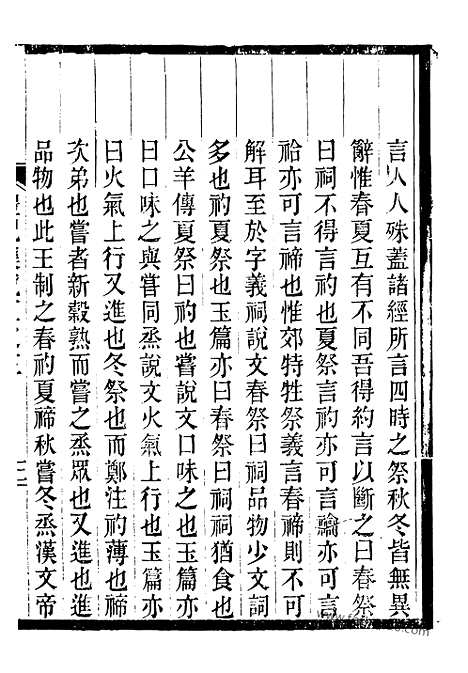 言人人殊蓋諸經所言四時之祭秋冬皆無異
辭惟春夏互有不同吾得約言以斷之曰春祭
曰祠不得言礿也夏祭言礿亦可言禴亦可言
祫亦可言禘也惟郊特牲祭義言春禘則不可
解耳至於字義祠說文春祭曰祠品物少文詞
多也礿夏祭也玉篇亦曰春祭曰祠祠猶食也
公羊傳夏祭曰礿也嘗說文口味之也玉篇亦
曰口味之與嘗同烝說文火氣上行也玉篇亦
曰火氣上行又進也冬祭也而鄭注礿薄也禘
次弟也嘗者新穀熟而嘗之烝眾也又進也進
品物也此王制之春礿夏禘秋嘗冬烝漢文帝